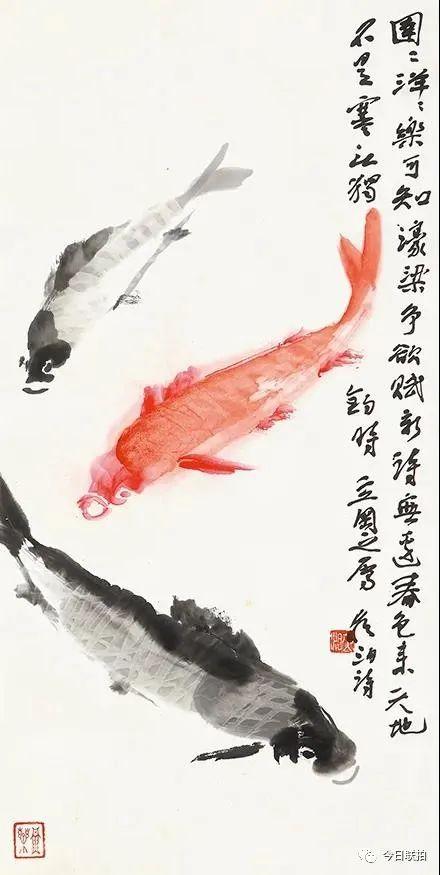 圉〻洋〻樂可知濠梁争欲賦新詩無邊春色來天地
不是寒江獨
釣時
今日联拍